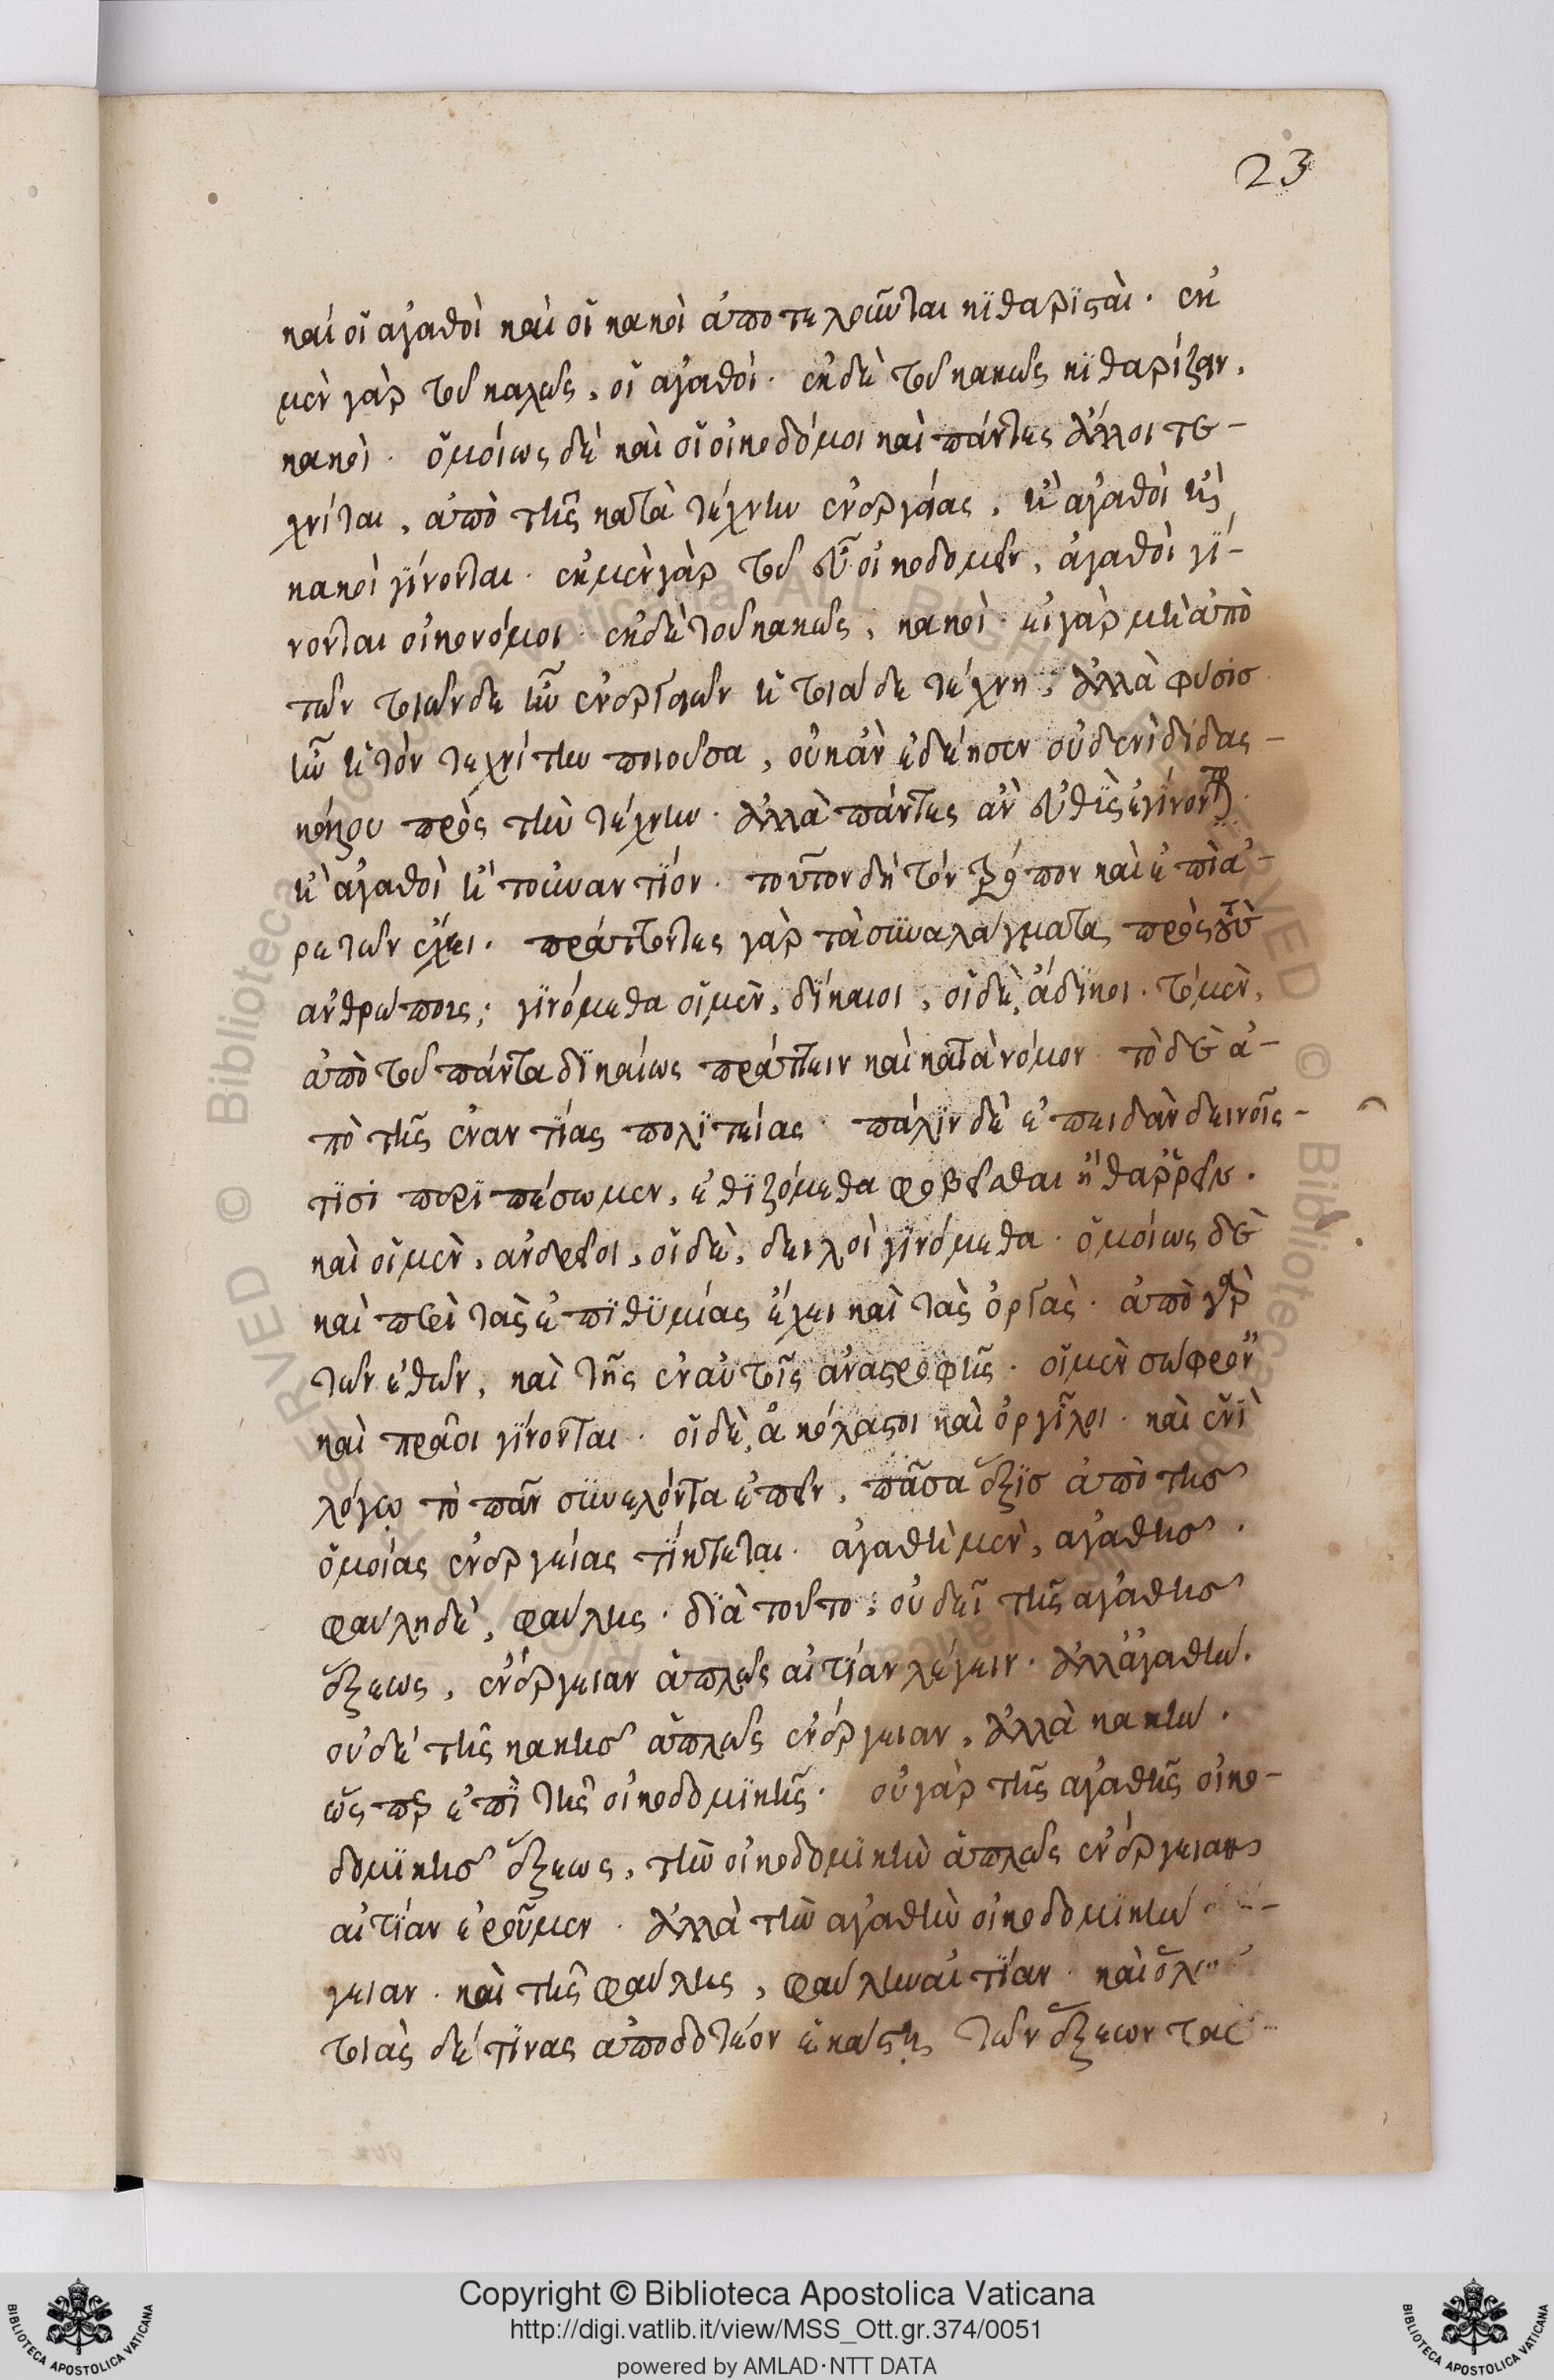 23
καὶ οἱ ἀγαθοὶ καὶ οἱ κακοὶ ἀποτελοῦνται κϊθαρϊσταὶ· ἐκ
μὲν γὰρ τοῦ καλῶς, οἱ ἀγαθοὶ· ἐκ δὲ τοῦ κακῶς κϊθαρίζειν,
κακοὶ· ὁμοίως δὲ καὶ οἱ οἰκοδόμοι καὶ πάντες ἄλλοι τε-
χνίται, ἀπὸ τῆς κατὰ τέχνην ἐνεργείας, ἢ ἀγαθοὶ ἢ
κακοὶ γίνονται· ἐκ μὲν γὰρ τοῦ εὖ οἰκοδομεῖν, ἀγαθοὶ γί-
νονται οἰκονόμοι· ἐκ δὲ τοῦ κακῶς, κακοὶ· εἰ γὰρ μὴ ἀπὸ
τῶν τοιῶνδε ἦν ἐνεργειῶν ἡ τοιάδε τέχνη, ἀλλὰ φύσις
ἦν ἡ τὸν τεχνίτην ποιοῦσα, οὐκ ἂν ἐδέησεν οὐδενὶ διδας-
κάλου πρὸς τὴν τέχνην· ἀλλὰ πάντες ἂν εὐθῢς ἐγίνοντο
ἢ ἀγαθοὶ ἢ τοὐναντίον· τοῦτον δὴ τὸν τρόπον καὶ ἐπὶ ἀ-
ρετῶν ἔχει· πράττοντες γὰρ τὰ συναλάγματα πρὸς τοὺς
ἀνθρώπους, γινόμεθα οἱ μὲν, δίκαιοι, οἱ δὲ, ἄδικοι· τὸ μὲν,
ἀπὸ τοῦ πάντα δικαίως πράττειν καὶ κατὰ νόμον· τὸ δὲ ἀ-
πὸ τῆς ἐναντίας πολιτείας· πάλιν δὲ ἐπειδὰν δεινοῖς-
τισὶ περιπέσωμεν, ἐθιζόμεθα φοβεῖσθαι ἢ θαρρεῖν.
καὶ οἱ μὲν, ἀνδρεῖοι, οἱ δὲ, δειλοὶ γινόμεθα· ὁμοίως δὲ
καὶ περὶ τὰς ἐπιθυμίας ἔχει καὶ τὰς ὀργὰς· ἀπὸ γὰρ
τῶν ἐθῶν, καὶ τῆς ἐν αὐτοῖς ἀναστροφῆς· οἱ μὲν σώφρον
καὶ πρᾶοι γίνονται· οἱ δὲ, ἀκόλαστοι καὶ ὀργίλοι· καὶ ἑνὶ
λόγῳ τὸ πᾶν συνελόντα εἰπεῖν, πᾶσα ἕξις ἀπὸ τῆς
ὁμοίας ἐνεργείας τίκτεται· ἀγαθὴ μὲν, ἀγαθῆς.
φαύλη δὲ, φαύλης· διὰ τοῦτο, οὐ δεῖ τῆς ἀγαθῆς
ἕξεως, ἐνέργειαν ἁπλῶς αἰτίαν λέγειν· ἀλλ' ἀγαθήν.
οὐδὲ τῆς κακῆς ἁπλῶς ἐνέργειαν, ἀλλὰ κακήν.
ὥσπερ ἐπὶ τῆς οἰκοδομικῆς· οὐ γὰρ τῆς ἀγαθῆς οἰκο-
δομικῆς ἕξεως, τὴν οἰκοδομικὴν ἁπλῶς ἐνέργειαν
αἰτίαν ἐροῦμεν· ἀλλὰ τὴν ἀγαθὴν οἰκοδομικὴν
γειαν· καὶ τῆς φαύλης, φαύλην αἰτίαν· καὶ
τοιὰς δέ τινας ἀποδοτέον ἑκάστης τῶν ἕξεων τὰς
Copyright © Biblioteca Apostolica Vaticana
http://digi.vatlib.it/view/MSS_Ott.gr.374/0051
powered by AMLAD·NTT DATA